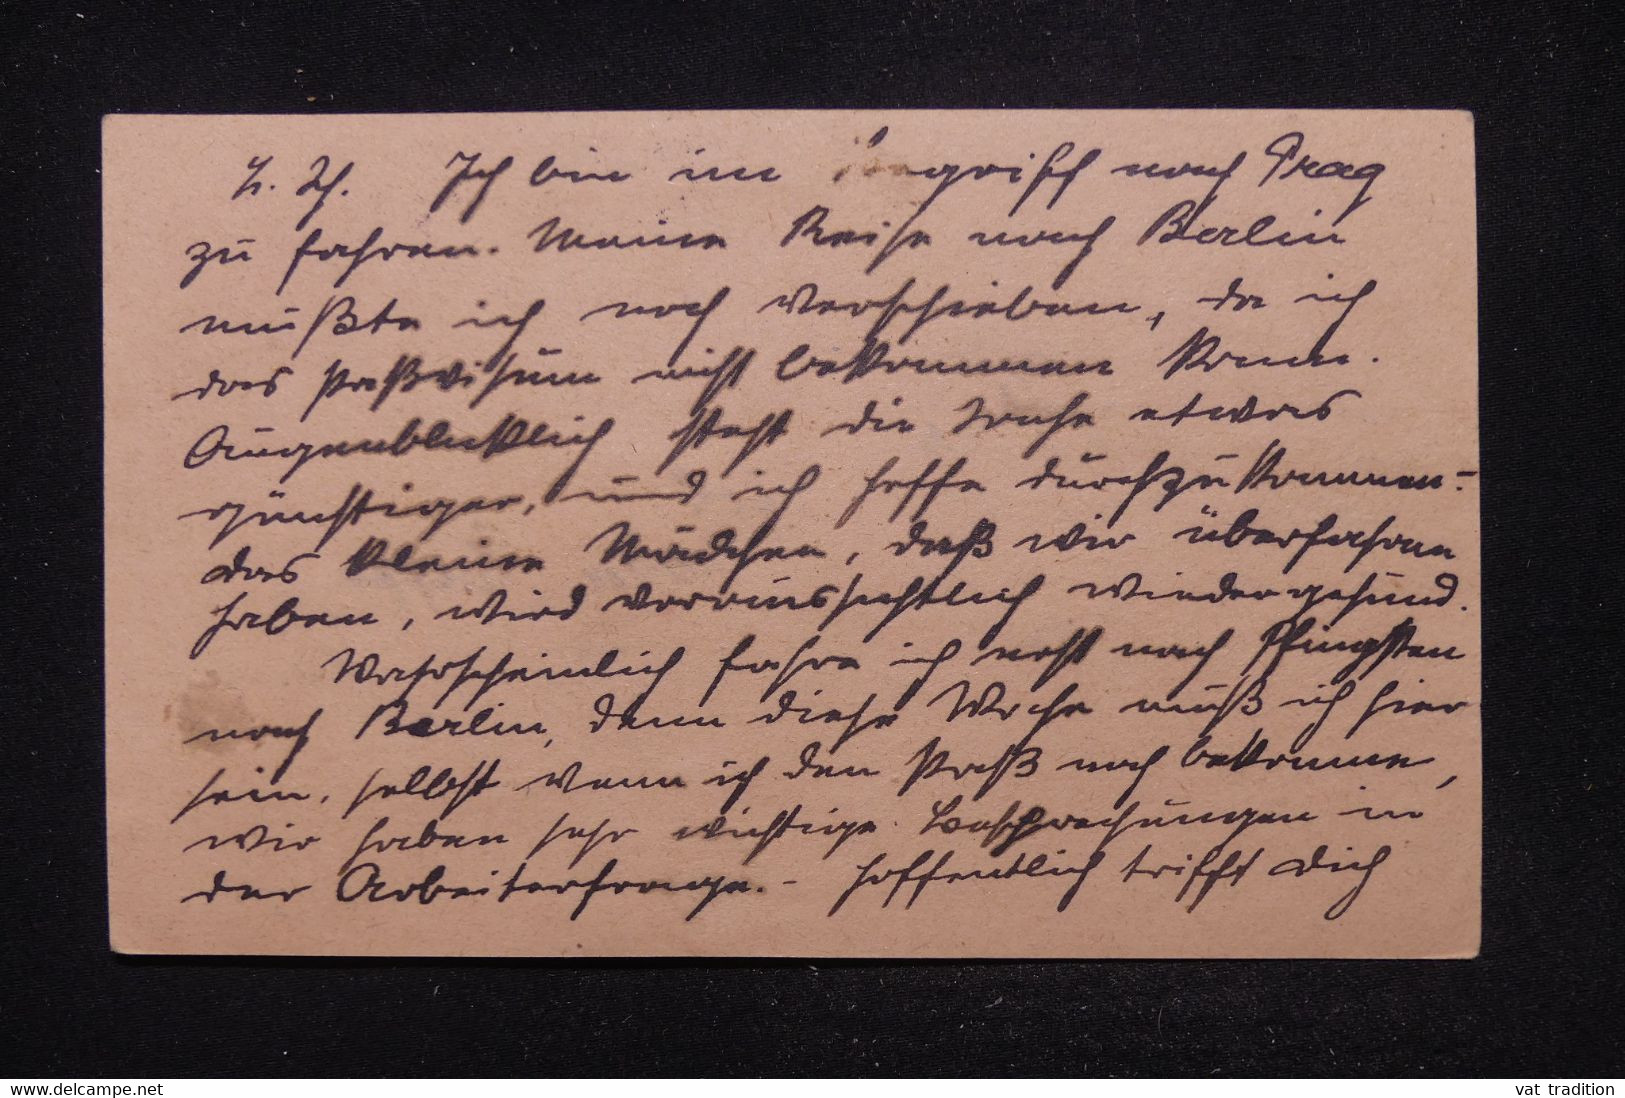 L. Ich bin im Begriff nach Prag
zu fahren. Meine Reise nach Berlin
mußte ich noch verschieben, da ich
das Paßvisum nicht bekommen kann.
Augenblicklich steht die Sache etwas
günstiger, und ich hoffe durchzukommen. -
das kleine Mädchen, daß wir überfahren
haben, wird voraussichtlich wieder gesund.
Wahrscheinlich fahre ich erst nach Pfingsten
nach Berlin, denn diese Woche muß ich hier
sein, selbst wenn ich den Paß noch bekomme,
wir haben sehr wichtige Besprechungen in
der Arbeiterfrage. - Hoffentlich trifft Dich
delcampe.net
vat tradition